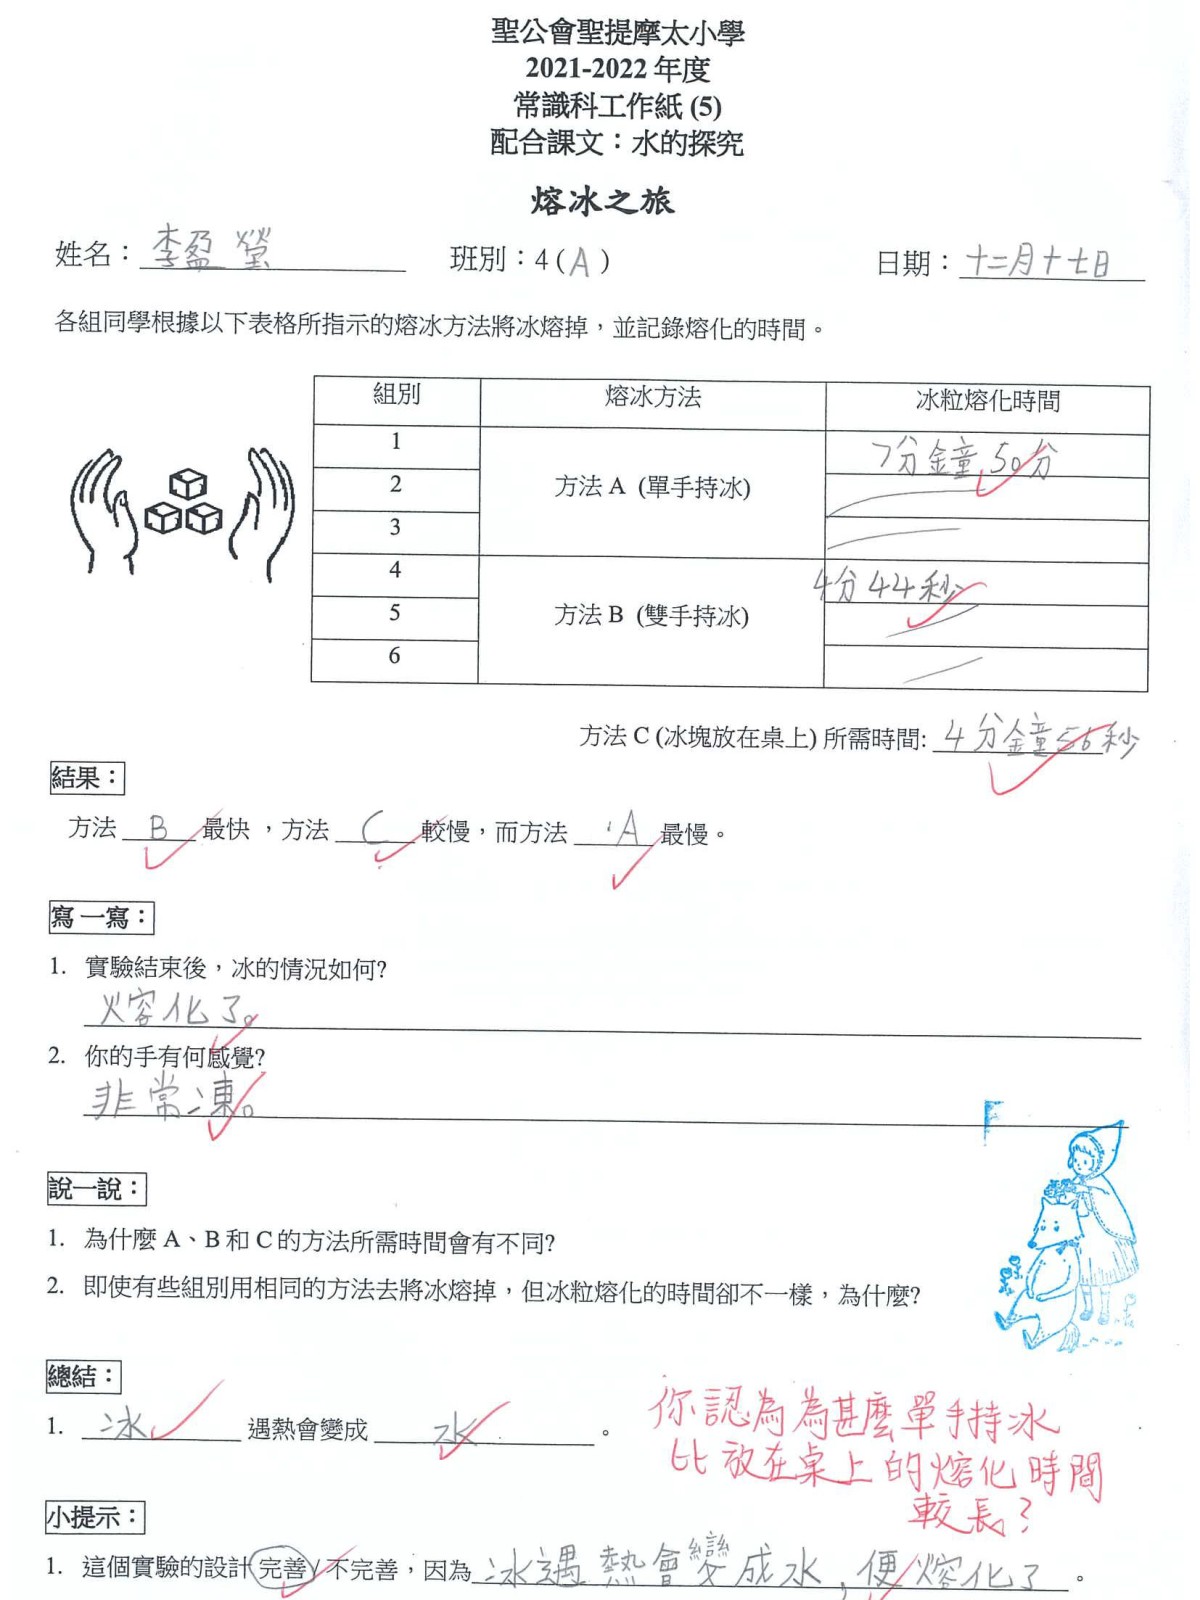 聖公會聖提摩太小學
2021-2022 年度
常識科工作紙 (5)
配合課文：水的探究
熔冰之旅
姓名：李盈螢 班別：4 (A) 日期：十二月十七日
各組同學根據以下表格所指示的熔冰方法將冰熔掉，並記錄熔化的時間。
組別 熔冰方法 冰粒熔化時間
1 7分鐘50分
2 方法 A (單手持冰)
3
4 4分44秒
5 方法 B (雙手持冰)
6
方法 C (冰塊放在桌上) 所需時間: 4分鐘56秒
結果：
方法 B 最快，方法 C 較慢，而方法 A 最慢。
寫一寫：
1. 實驗結束後，冰的情況如何?
熔化了。
2. 你的手有何感覺?
非常凍。
說一說：
1. 為什麼 A、B 和 C 的方法所需時間會有不同?
2. 即使有些組別用相同的方法去將冰熔掉，但冰粒熔化的時間卻不一樣，為什麼?
總結：
1. 冰 遇熱會變成 水 。
你認為為甚麼單手持冰
比放在桌上的熔化時間
較長？
小提示：
1. 這個實驗的設計 完善 / 不完善，因為 冰遇熱會變成水，便熔化了 。